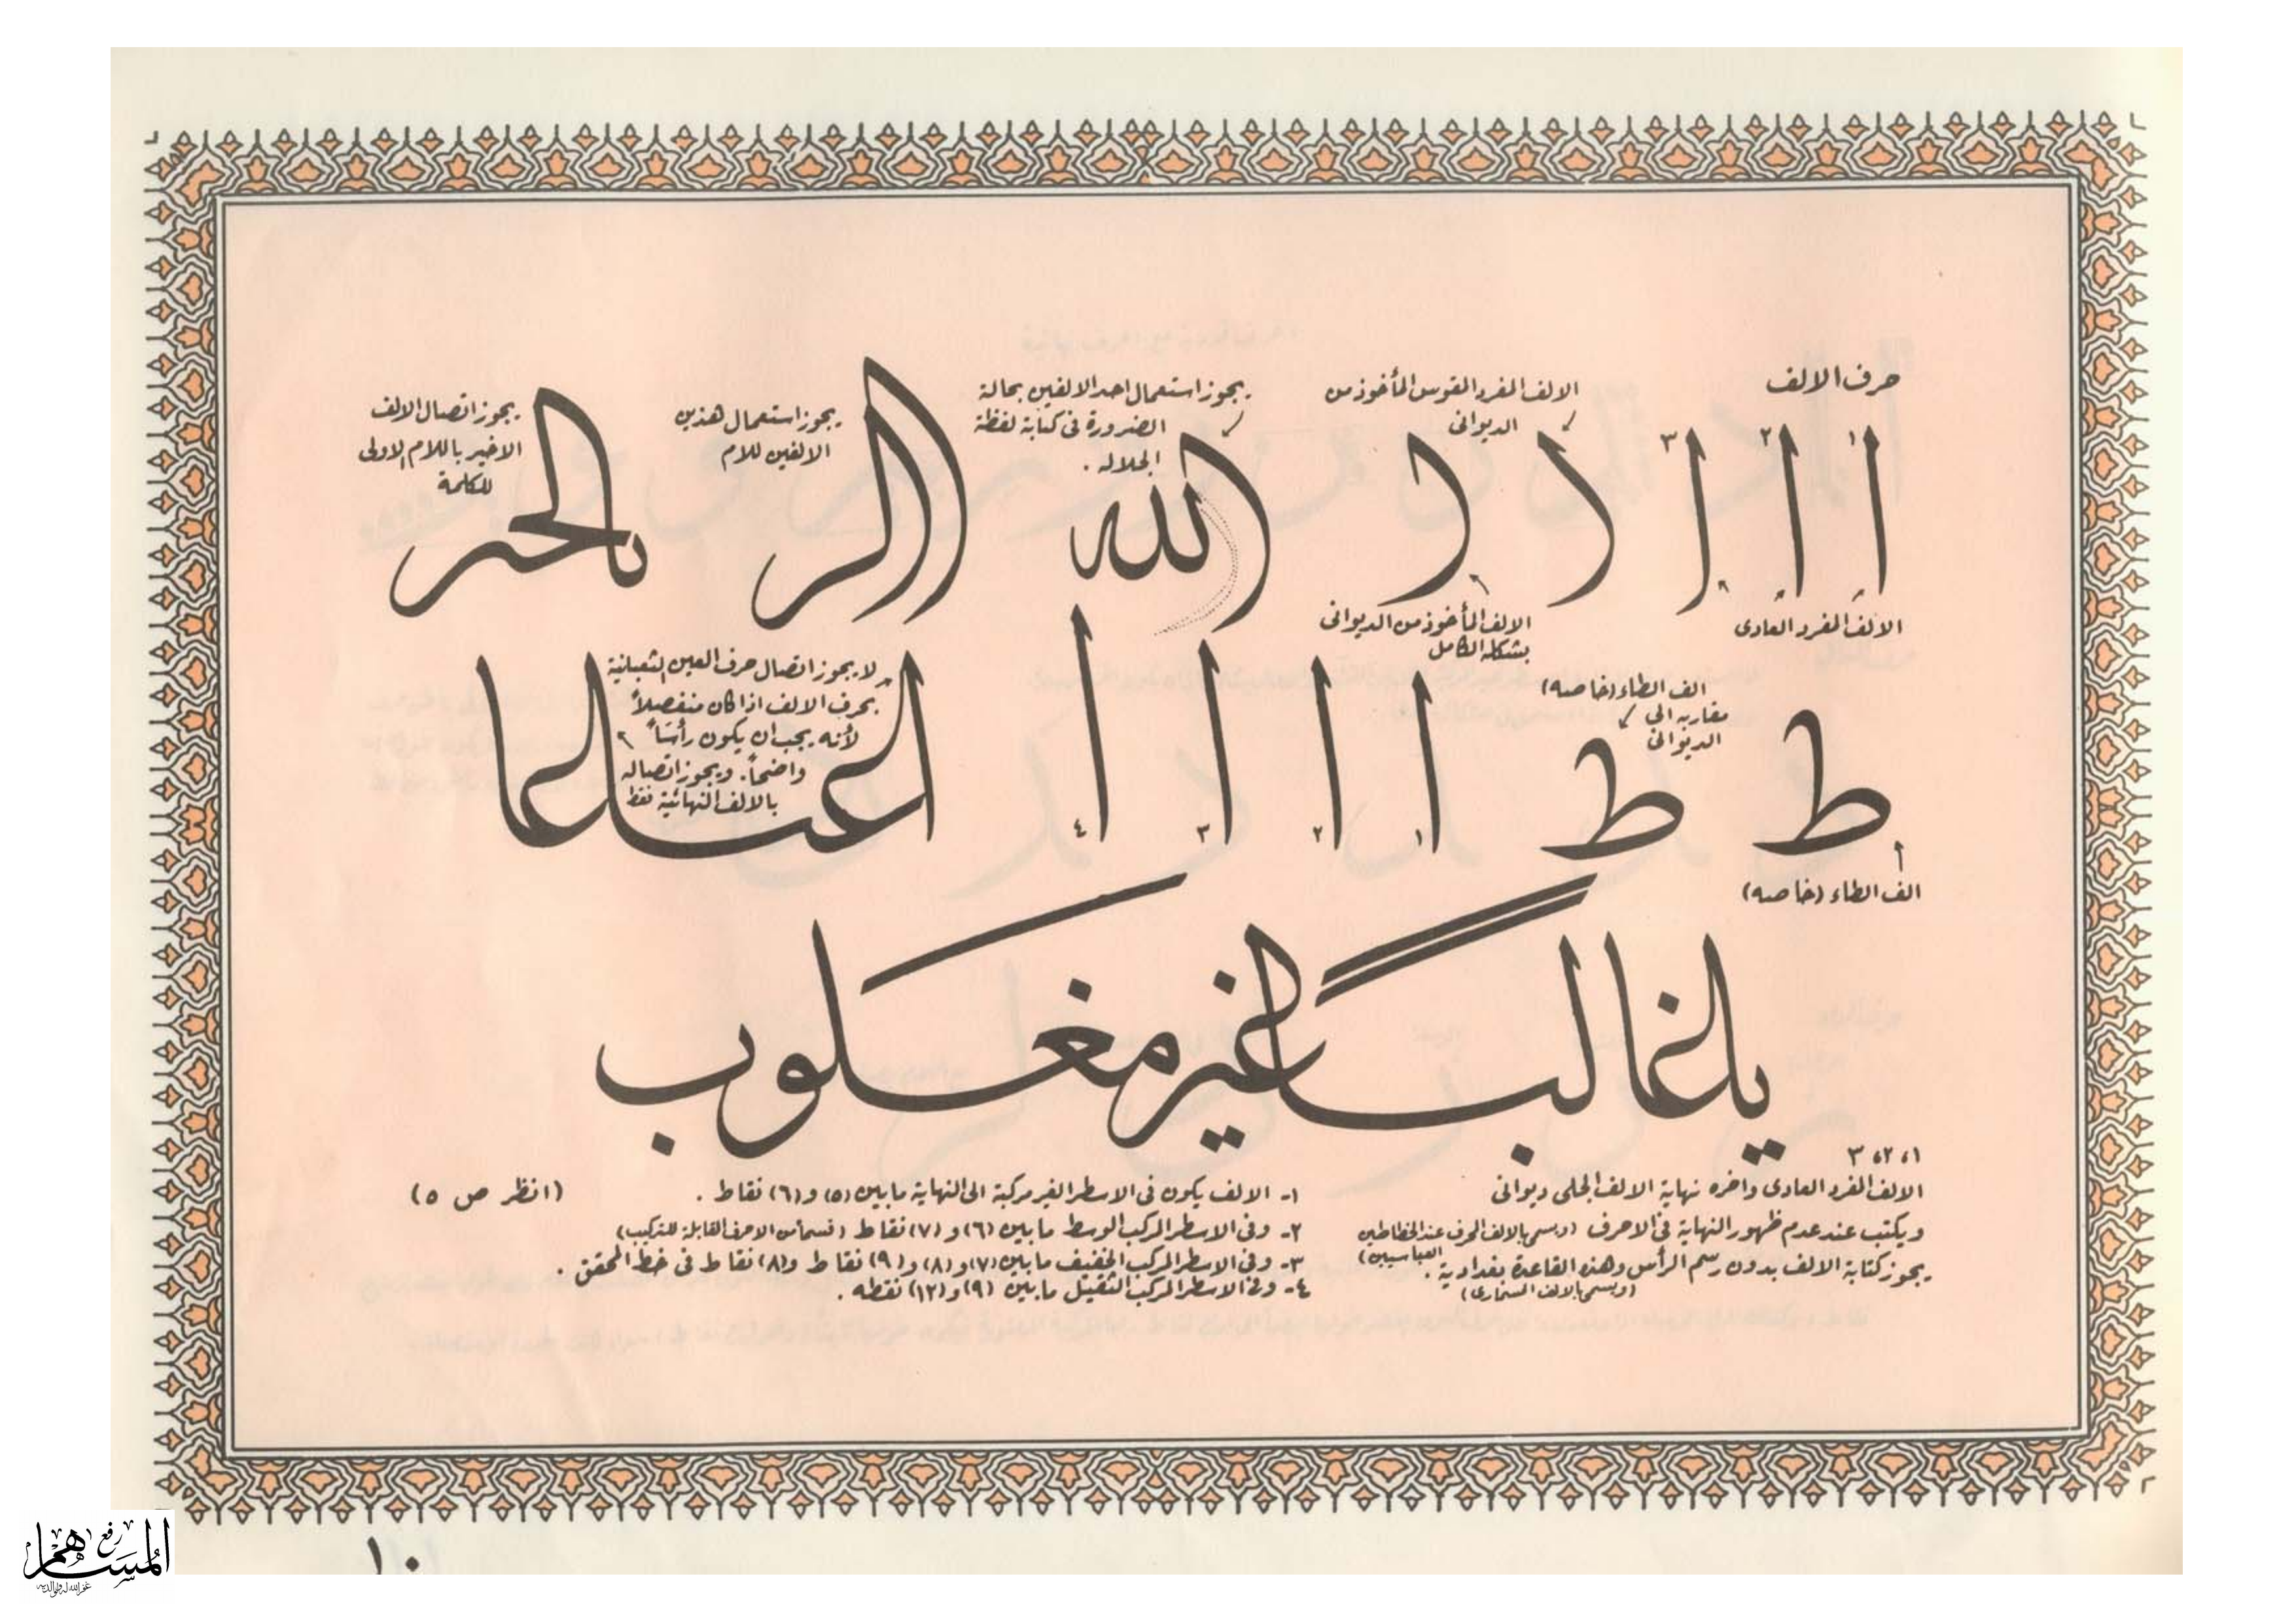 حرف الالف
١ ٢ ٣
ا ا ا
الالف المفرد العادى
الالف المفرد المقوس المأخوذ من
الديوانى
الالف المأخوذ من الديوانى
بشكله الكامل
يجوز استعمال احد الالفين بحالة
الضرورة فى كتابة لفظة
الجلاله .
الله
يجوز استعمال هذين
الالفين للام
يجوز اتصال الالف
الاخير باللام الاولى
للكلمة
ط ط
الف الطاء (خاصه)
مقاربه الى
الديوانى
الف الطاء (خاصه)
ا ا ا ا
١ ٢ ٣ ٤
لا يجوز اتصال حرف العين الثعبانية
بحرف الالف اذا كان منفصلاً
لأنه يجب ان يكون رأسَاً
واضحاً. ويجوز اتصاله
بالالف النهائية فقط
يا غالبا غير مغلوب
١، ٢، ٣
الالف المفرد العادى واخره نهاية الالف الجلى ديوانى
ويكتب عند عدم ظهور النهاية فى الاحرف (ويسمى بالالف المحرف عند الخطاطين
العباسيين)
يجوز كتابة الالف بدون رسم الرأس وهذه القاعدة بغدادية .
١- الالف يكون فى الاسطر الغير مركبة الى النهاية ما بين (٥) و (٦) نقاط . (انظر ص ٥)
٢- وفى الاسطر المركب الوسط ما بين (٦) و (٧) نقاط (قسماً من الاحرف القابلة للتركيب)
٣- وفى الاسطر المركب الخفيف ما بين (٧) و (٨) و (٩) نقاط و (٨) نقاط فى خط المحقق .
٤- وفى الاسطر المركب الثقيل ما بين (٩) و (١٢) نقطه .
١٠